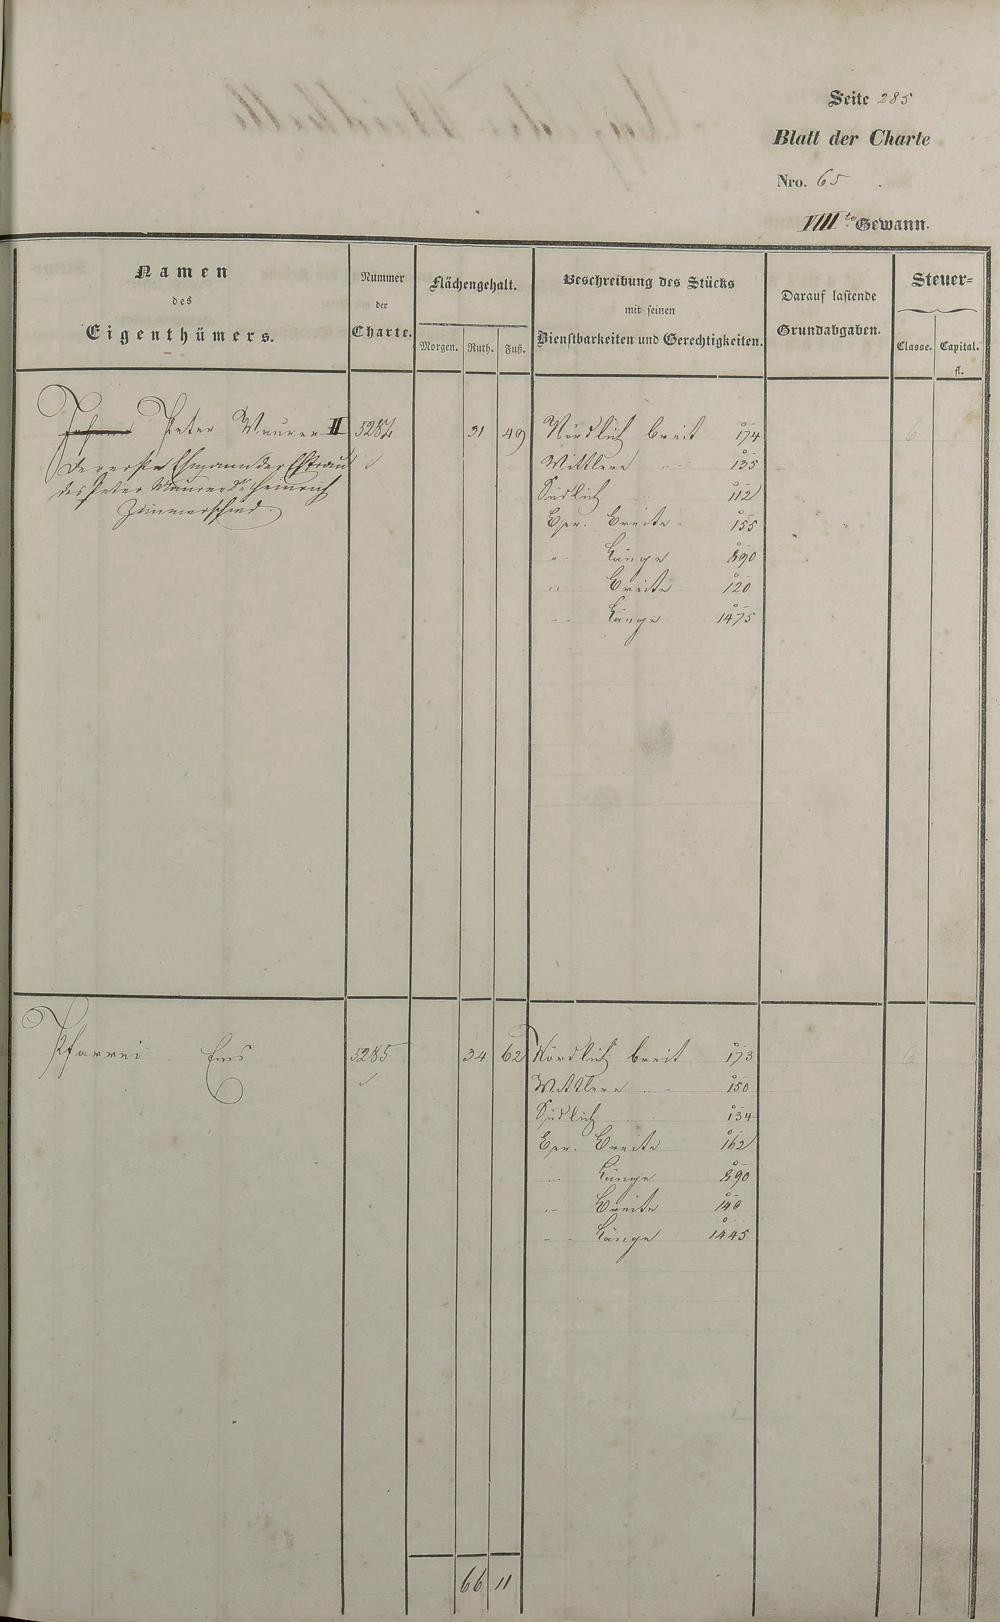 Seite 285
Blatt der Charte
Nro. 65
VIIIte Gewann.
Namen
des
Eigenthümers.
Nummer
der
Charte.
Flächengehalt.
Morgen. Ruth. Fuß.
Beschreibung des Stücks
mit seinen
Dienstbarkeiten und Gerechtigkeiten.
Darauf lastende
Grundabgaben.
Steuer=
Classe. Capital.
fl.
Johann Peter Maurer II 5284 31 49 Nördlich breit 174 6
Ehmann der Ehfrau Mittlere 135
des Peter Maurer Heinrich Südlich 112
Ger. Breite 155
" Länge 890
" Breite 120
" Länge 1475
Pfarrei Ems 5285 34 62 Nördlich breit 173 6
Mittlere 150
Südlich 134
Ger. Breite 162
" Länge 890
" Breite 140
" Länge 1445
66 11